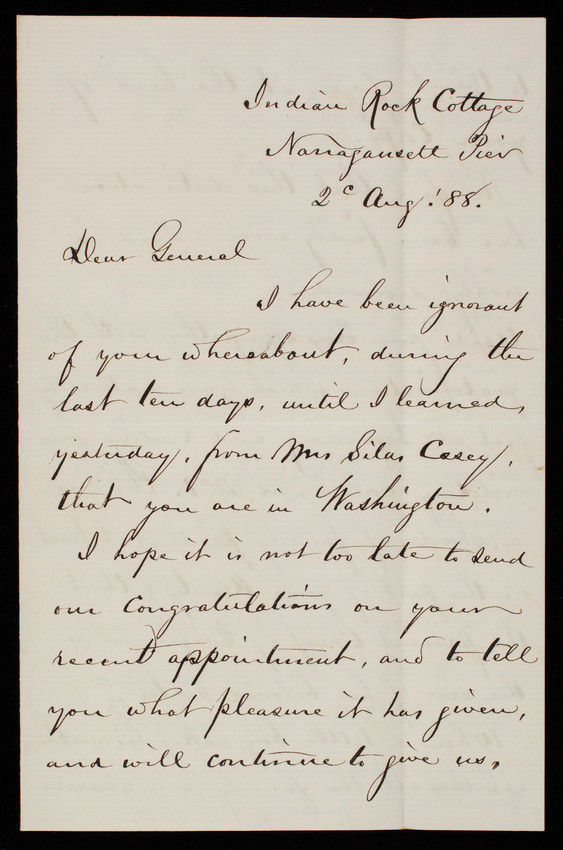 Indian Rock Cottage
Narragansett Pier
2c Aug! 88.
Dear General
I have been ignorant
of your whereabout, during the
last ten days, until I learned,
yesterday, from Mrs Silas Casey,
that you are in Washington.
I hope it is not too late to send
our congratulations on your
recent appointment, and to tell
you what pleasure it has given,
and will continue to give us,